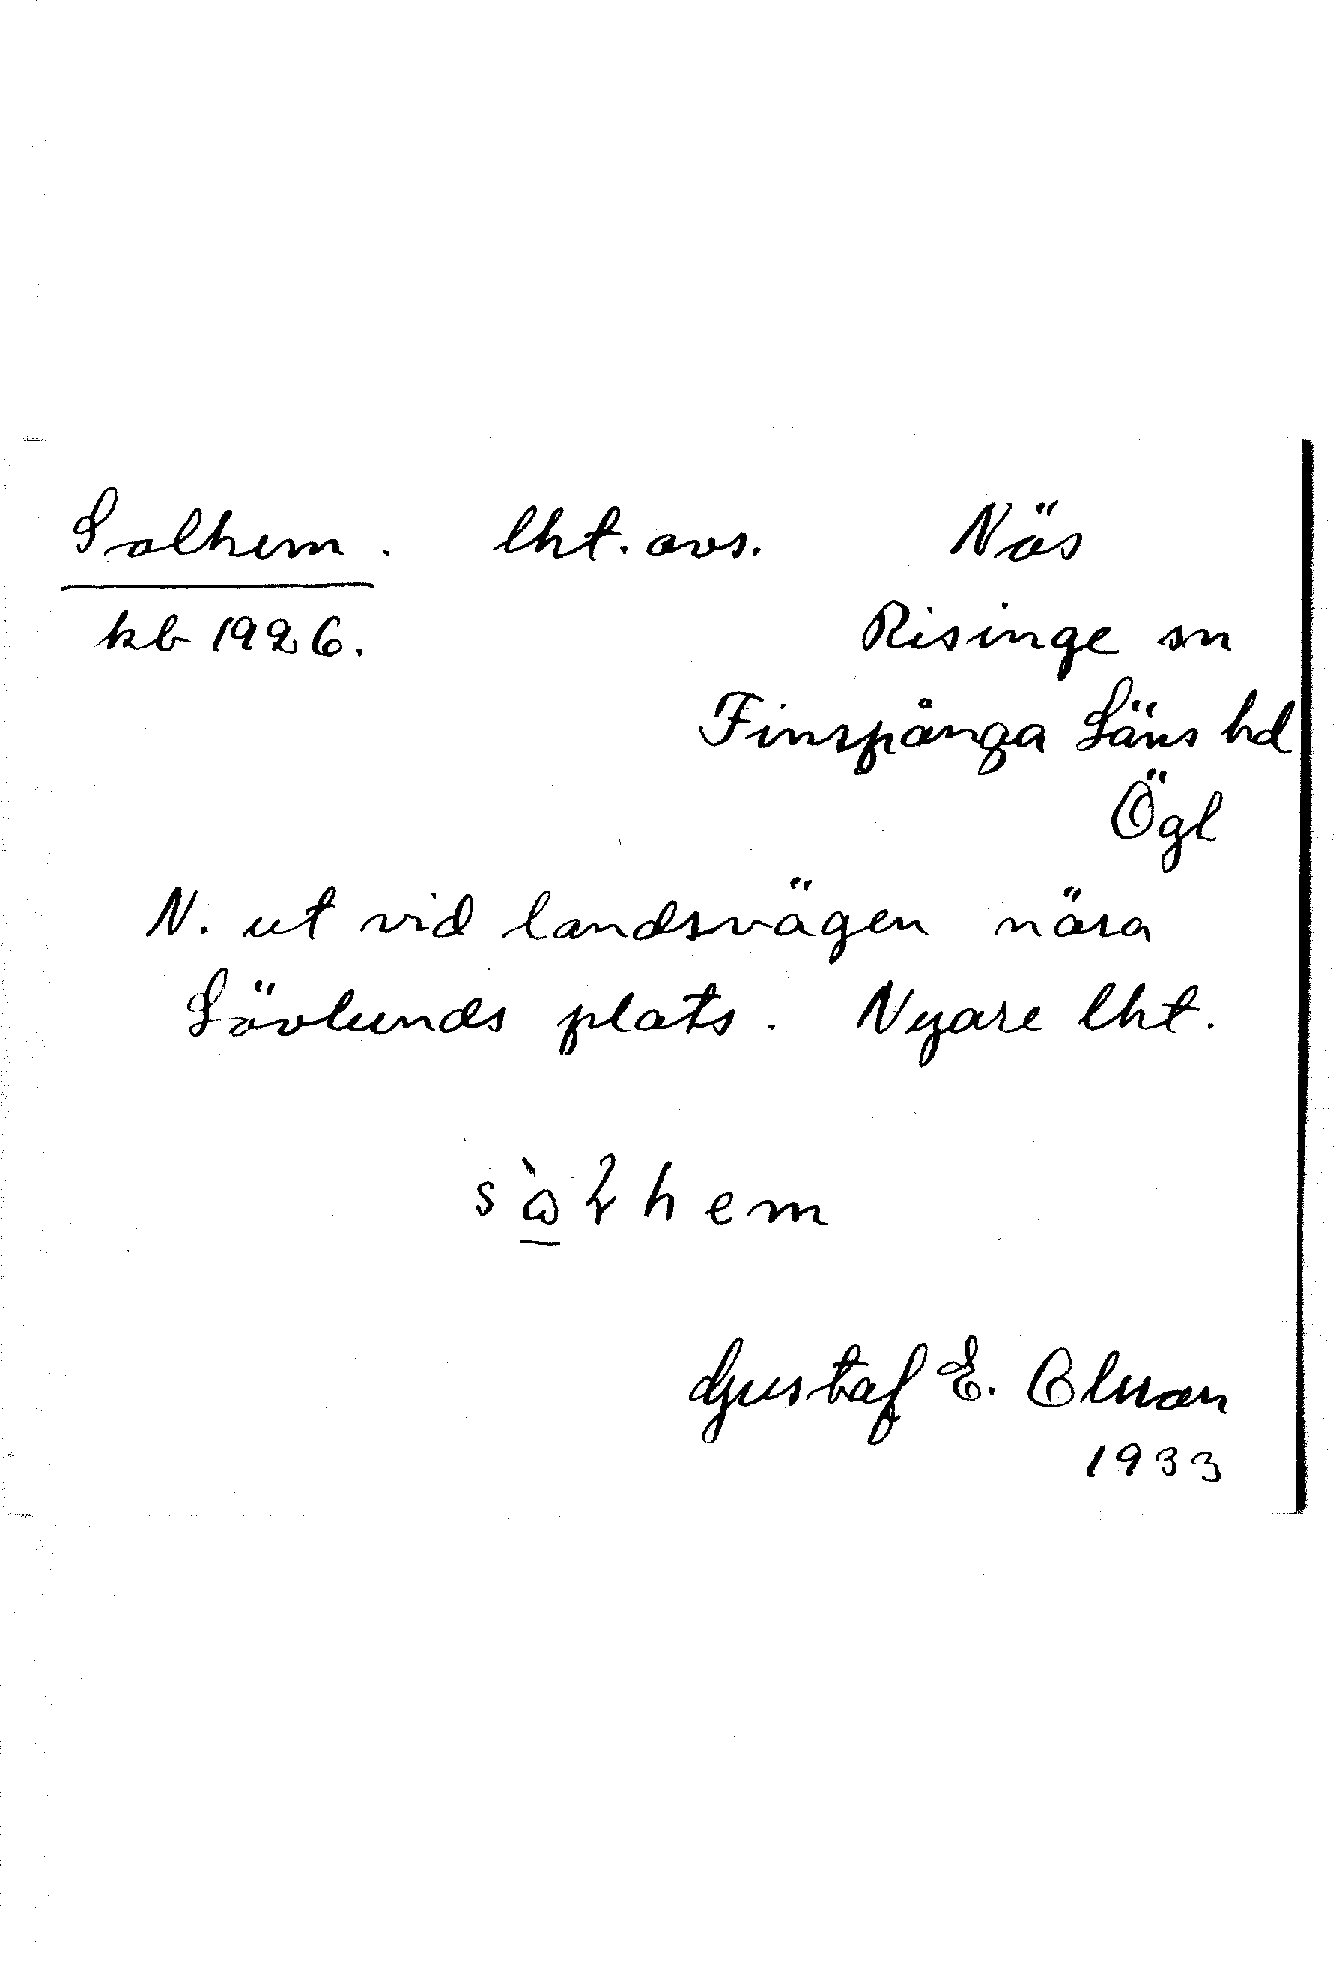 Solhem. lht. avs. Näs
kb 1926. Risinge sn
Finspånga Läns hd
Ögl
N. ut vid landsvägen nära
Lövlunds plats. Nyare lht.
hem
Gustaf E. Olsson
1933